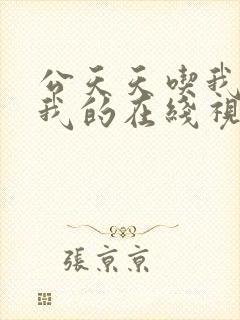 公天天喫我
我的在綫視
張京京